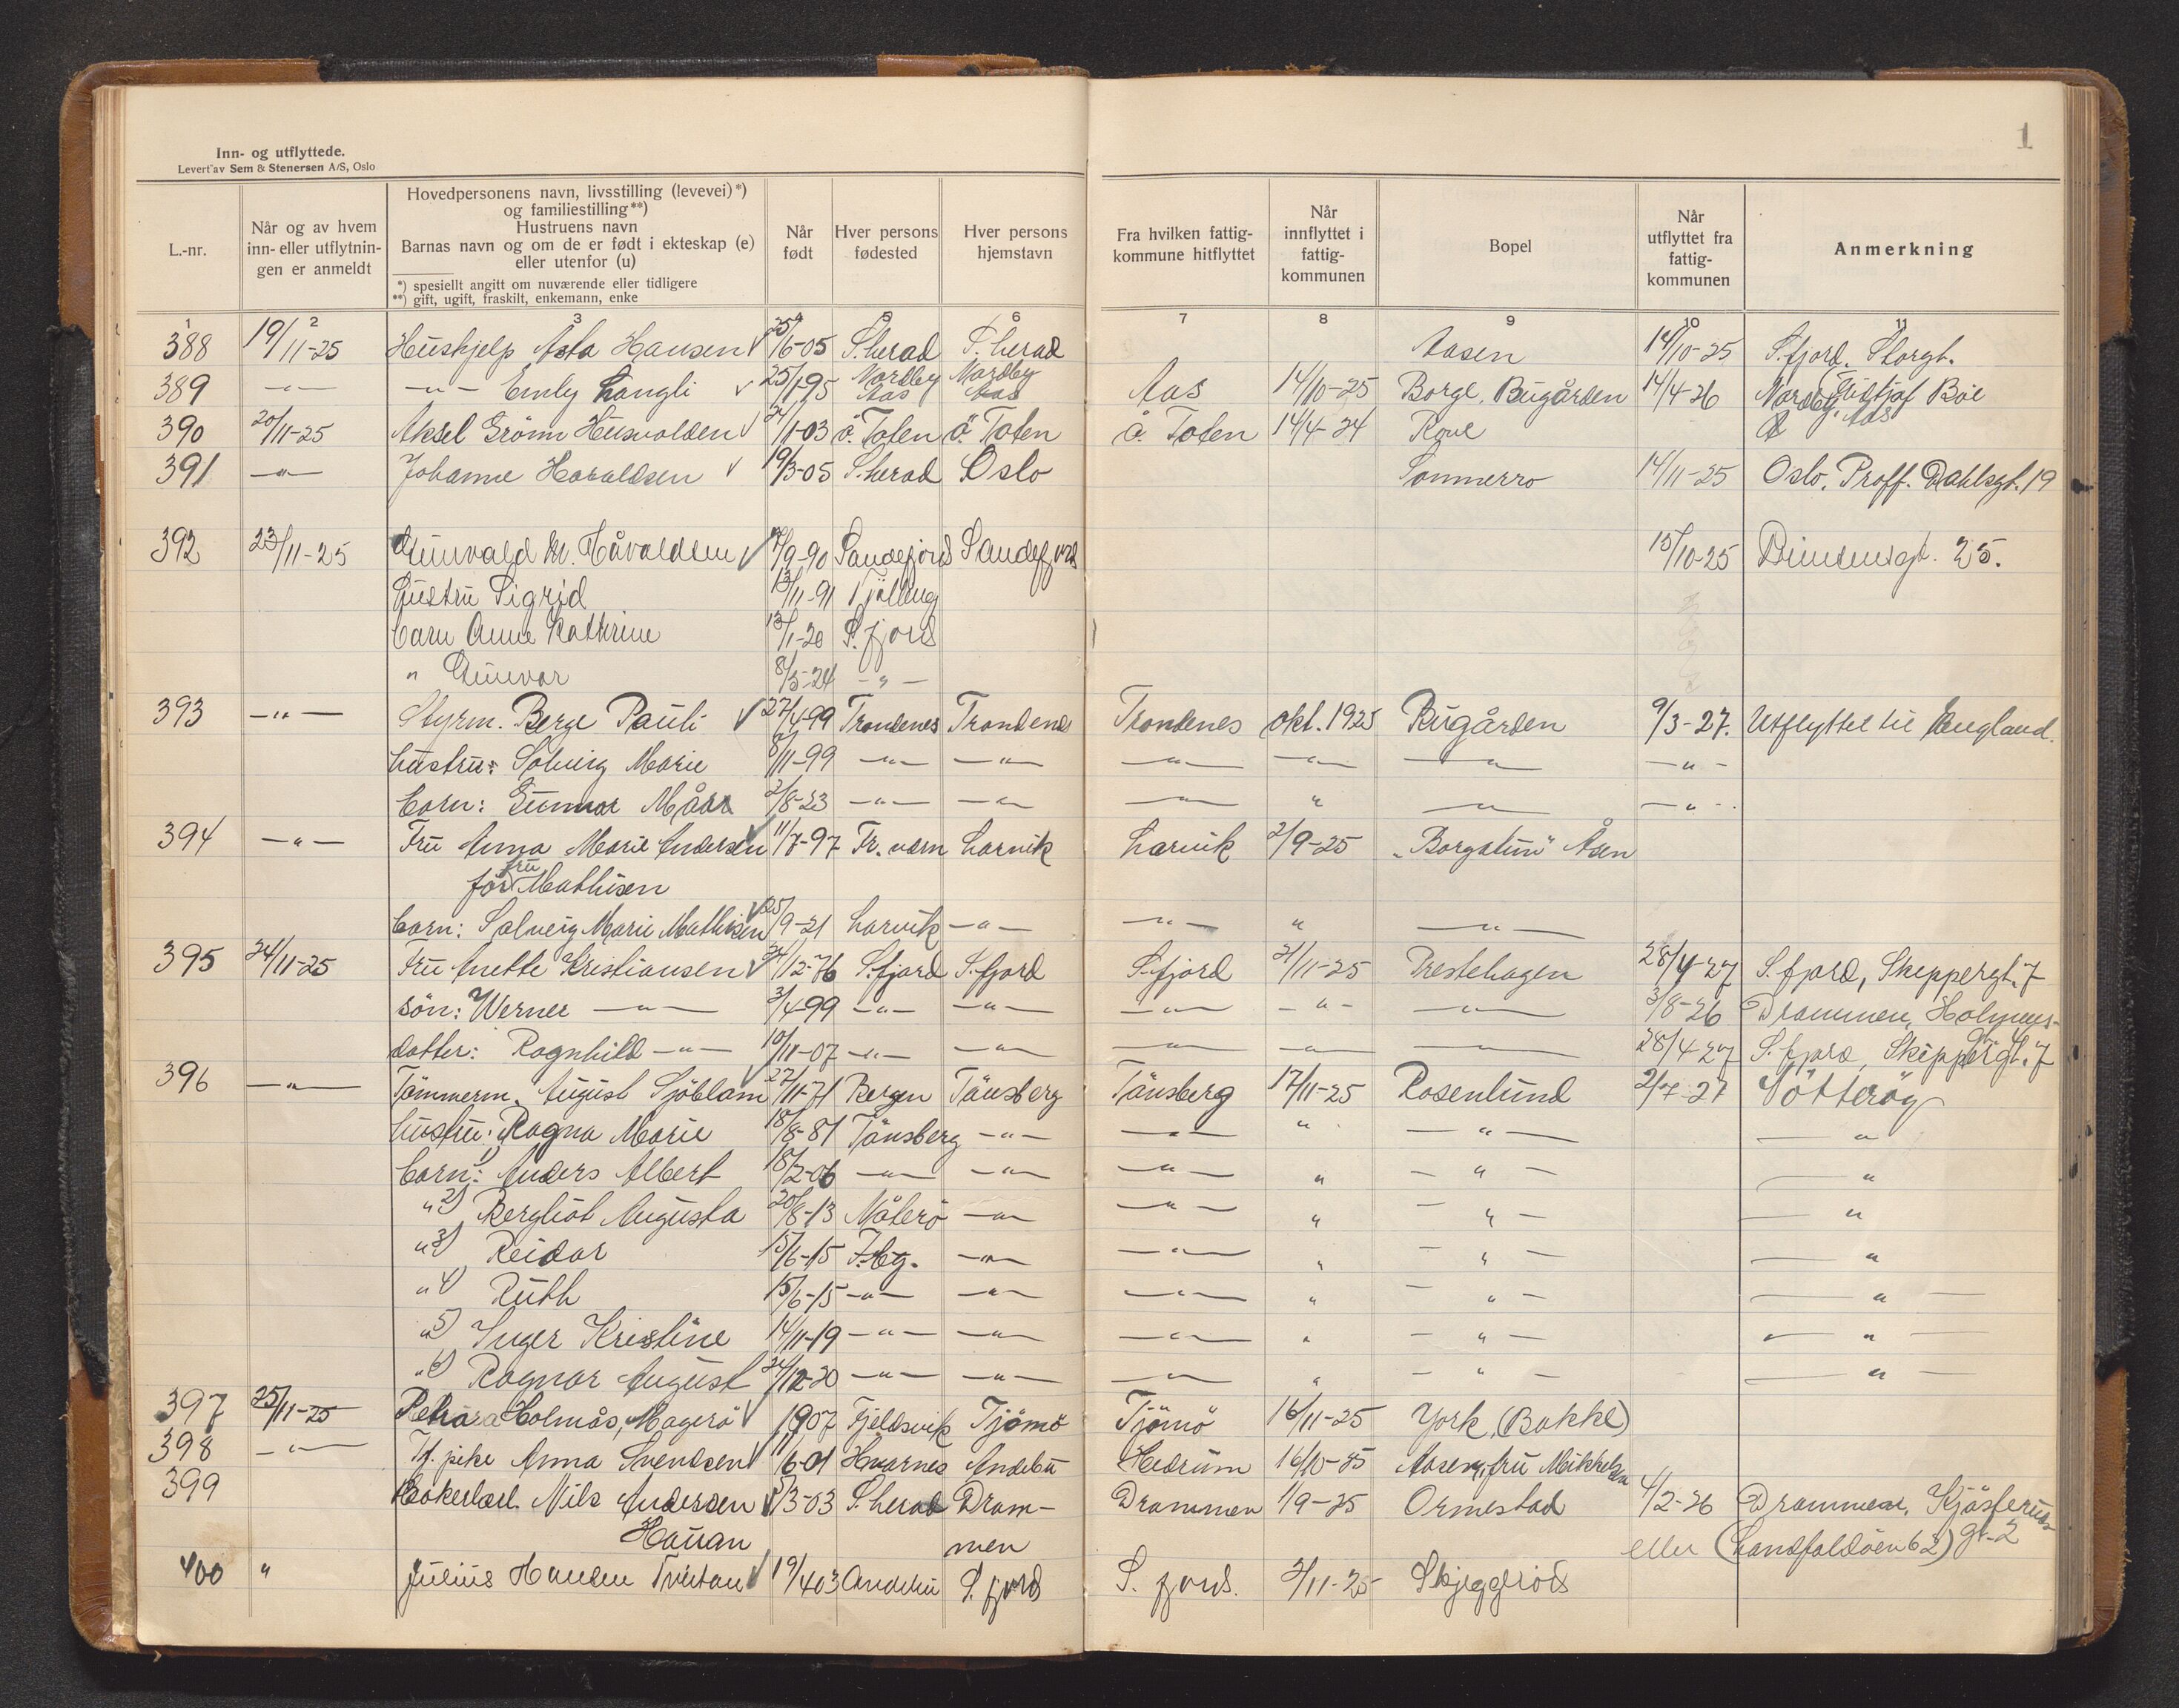 1
Inn- og utflyttede.
Levert av Sem & Stenersen A/S, Oslo
L.-nr. Når og av hvem inn- eller utflytnin-gen er anmeldt Hovedpersonens navn, livsstilling (levevei)*) og familiestilling**) Hustruens navn Barnas navn og om de er født i ekteskap (e) eller utenfor (u) *) spesiellt angitt om nuværende eller tidligere **) gift, ugift, fraskilt, enkemann, enke Når født Hver persons fødested Hver persons hjemstavn Fra hvilken fattig-kommune hitflyttet Når innflyttet i fattig-kommunen Bopel Når utflyttet fra fattig-kommunen Anmerkning
1 2 3 4 5 6 7 8 9 10 11
388 19/11-25 Hushjelp Asta Hansen √ 25/6-05 S.herad S.herad Aasen 14/10-25 S.fjord. Storgt.
389 -"- -"- Emly Langli √ 25/1-95 Nordby Aas Nordby Aas Aas 14/10-25 Borge, Bugården 14/4-26 Nordby, Aas Fridtjof Boe
390 20/11-25 Aksel Grönn Husvolden √ 21/1-03 ö. Toten ö. Toten ö. Toten 14/4-24 Rove
391 -"- Johanne Haraldsen √ 19/3-05 S.herad Oslo Sommerro 14/11-25 Oslo, Proff. Dahlsgt. 19
392 23/11-25 Gunvald M. Håvaldsen √ /9-90 Sandefjord Sandefjord 15/10-25 25.
Hustru Sigrid 13/11-91 Tjölling
barn Anne Kathrine 13/1-20 S. fjord
" Gunvor 8/5-24 -"-
393 -"- Styrm. Berge Pauli √ 27/4-99 Trondenes Trondenes Trondenes okt. 1925 Bugården 9/3-27. Utflyttet til England.
hustru: Solveig Marie 8/11-99 -"- -"- -"- -"- -"- -"-
barn: Gunnar 2/8-23 -"- -"- -"- " -"- -"-
394 -"- Fru Anna Marie Andersen √ 11/7-97 Fr.værn Larvik Larvik 2/9-25 "Borgatun" Åsen
för fru Mathisen
barn: Solveig Marie Mathisen √ 25/9-21 Larvik -"- -"- " -"-
395 24/11-25 Fru Anette Kristiansen √ /12-76 S.fjord S.fjord S.fjord 21/11-25 Prestehagen 28/4-27 S.fjord, Skippergt. 7
sön: Werner -"- 3/4-99 -"- -"- -"- -"- -"- 3/8-26 Drammen,
datter: Ragnhild -"- 10/11-07 -"- -"- -"- -"- -"- 28/4-27 S.fjord, Skippergt. 7
396 -"- Tömmerm. August Sjöblom √ 27/11-71 Bergen Tönsberg Tönsberg 17/11-25 Rosenlund 2/4-27 Nötteröy
hustru: Ragna Marie 18/8-81 Tönsberg -"- -"- " -"- -"-
barn: 1) Anders Albert 18/2-06 -"- -"- -"- " -"- -"-
" 2) Bergliot Augusta 20/8-13 Nöterö -"- -"- " -"- -"-
" 3) Reidar 15/6-15 T.bg. -"- -"- " -"- -"-
" 4) Ruth 15/6-15 -"- -"- -"- " -"- -"-
" 5) Inger Kristine 14/11-19 -"- -"- -"- " -"- -"-
" 6) Ragnar August 24/12-20 -"- -"- -"- " -"- -"-
397 25/11-25 Petra Holmås, Magerö √ 1907 Fjeldsvik Tjömö Tjömö 16/11-25 York, (Bakke)
398 -"- Tj. pike Anna Svendsen √ 11/6-01 Hvarnes Andebu Hedrum 16/10-25 Aasen, fru Mikkelsen
399 Bakerlærl. Nils Andersen √ /3-03 S.herad Dram- Drammen 1/9-25 Ormestad 4/2-26 Drammen, Kjösterud-
Hauan men eller (Landfaldöen 62) gt. 2
400 " Julius Hansen Tvetan √ 19/4 03 Andebu S. fjord S. fjord. 2/11-25 Skjeggeröd